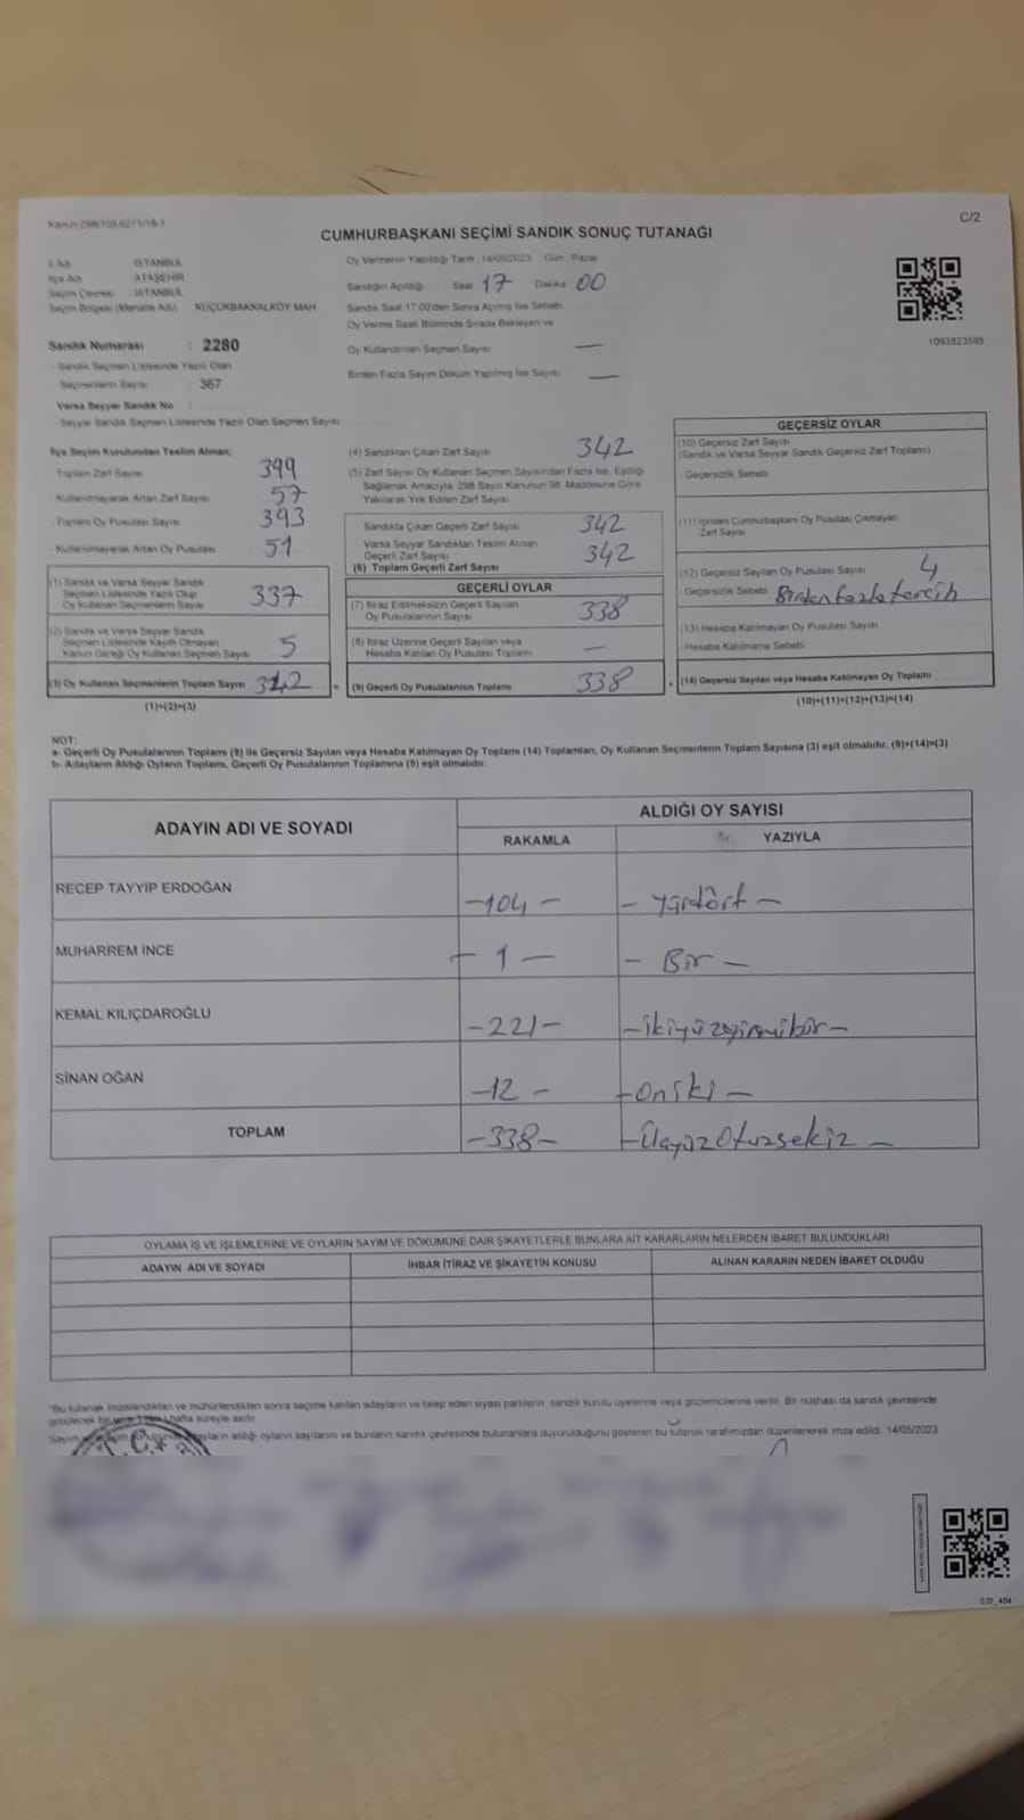 C/2
CUMHURBAŞKANI SEÇİMİ SANDIK SONUÇ TUTANAĞI
İSTANBUL
ATAŞEHİR
İSTANBUL
KÜÇÜKBAKKALKÖY MAH.
Sandık Numarası : 2280
Sandık Seçmen Listesinde Yazılı Olan
Seçmenlerin Sayısı 367
Varsa Seyyar Sandık No
Seyyar Sandık Seçmen Listesinde Yazılı Olan Seçmen Sayısı
Oy Vermenin Yapıldığı Tarih : 14/05/2023 Gün : Pazar
Sandığın Açıldığı Saat 17 Dakika 00
Sandık Saat 17:00'den Sonra Açılmış İse Sebebi
Oy Verme Saati Bitiminde Sırada Bekleyen ve
Oy Kullandırılan Seçmen Sayısı —
Birden Fazla Sayım Döküm Yapılmış İse Sayısı —
1093823599
İlçe Seçim Kurulundan Teslim Alınan;
Toplam Zarf Sayısı 399
Kullanılmayarak Artan Zarf Sayısı 57
Toplam Oy Pusulası Sayısı 393
Kullanılmayarak Artan Oy Pusulası 51
(1) Sandık ve Varsa Seyyar Sandık
Seçmen Listesinde Yazılı Olup
Oy Kullanan Seçmenlerin Sayısı 337
(2) Sandık ve Varsa Seyyar Sandık
Seçmen Listesinde Kayıtlı Olmayan
Kanun Gereği Oy Kullanan Seçmen Sayısı 5
(3) Oy Kullanan Seçmenlerin Toplam Sayısı 342
(1)+(2)=(3)
(4) Sandıktan Çıkan Zarf Sayısı 342
(5) Zarf Sayısı Oy Kullanan Seçmen Sayısından Fazla İse, Eşitliği
Sağlamak Amacıyla 298 Sayılı Kanunun 98. Maddesine Göre
Yakılarak Yok Edilen Zarf Sayısı
Sandıkta Çıkan Geçerli Zarf Sayısı 342
Varsa Seyyar Sandıktan Teslim Alınan
Geçerli Zarf Sayısı
(6) Toplam Geçerli Zarf Sayısı 342
GEÇERLİ OYLAR
(7) İtiraz Edilmeksizin Geçerli Sayılan
Oy Pusulalarının Sayısı 338
(8) İtiraz Üzerine Geçerli Sayılan veya
Hesaba Katılan Oy Pusulası Toplamı —
(9) Geçerli Oy Pusulalarının Toplamı 338
GEÇERSİZ OYLAR
(10) Geçersiz Zarf Sayısı
(Sandık ve Varsa Seyyar Sandık Geçersiz Zarf Toplamı)
Geçersizlik Sebebi
(11) İçinden Cumhurbaşkanı Oy Pusulası Çıkmayan
Zarf Sayısı
(12) Geçersiz Sayılan Oy Pusulası Sayısı 4
Geçersizlik Sebebi Birden fazla tercih
(13) Hesaba Katılmayan Oy Pusulası Sayısı
Hesaba Katılmama Sebebi
(14) Geçersiz Sayılan veya Hesaba Katılmayan Oy Toplamı
(10)+(11)+(12)+(13)=(14)
NOT:
a- Geçerli Oy Pusulalarının Toplamı (9) ile Geçersiz Sayılan veya Hesaba Katılmayan Oy Toplamı (14) Toplamları, Oy Kullanan Seçmenlerin Toplam Sayısına (3) eşit olmalıdır. (9)+(14)=(3)
b- Adayların Aldığı Oyların Toplamı, Geçerli Oy Pusulalarının Toplamına (9) eşit olmalıdır.
ADAYIN ADI VE SOYADI
ALDIĞI OY SAYISI
RAKAMLA YAZIYLA
RECEP TAYYİP ERDOĞAN -104- - yüzdört -
MUHARREM İNCE - 1 - - Bir -
KEMAL KILIÇDAROĞLU -221- -ikiyüzyirmibir-
SİNAN OĞAN -12 - -oniki -
TOPLAM -338- -Üçyüz Otuzsekiz -
OYLAMA İŞ VE İŞLEMLERİNE VE OYLARIN SAYIM VE DÖKÜMÜNE DAİR ŞİKAYETLERLE BUNLARA AİT KARARLARIN NELERDEN İBARET BULUNDUKLARI
ADAYIN ADI VE SOYADI İHBAR İTİRAZ VE ŞİKAYETİN KONUSU ALINAN KARARIN NEDEN İBARET OLDUĞU
Bu tutanak imzalandıktan ve mühürlendikten sonra seçime katılan adayların ve talep eden siyasi partilerin, sandık kurulu üyelerine veya gözlemcilerine verilir. Bir nüshası da sandık çevresinde
hafta süreyle asılır.
adayların aldığı oyların sayılarını ve bunların sandık çevresinde bulunanlara duyurulduğunu gösteren bu tutanak tarafımızdan düzenlenerek imza edildi. 14/05/2023
T.C.